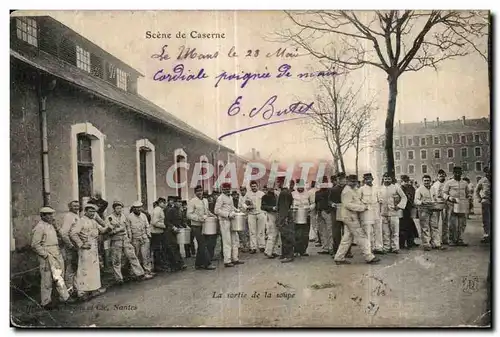 Scène de Caserne
Le Mans le 23 Mai
Cordiale poignée de main
E. Butet
CPARHAMA
La sortie de la soupe
et Cie, Nantes